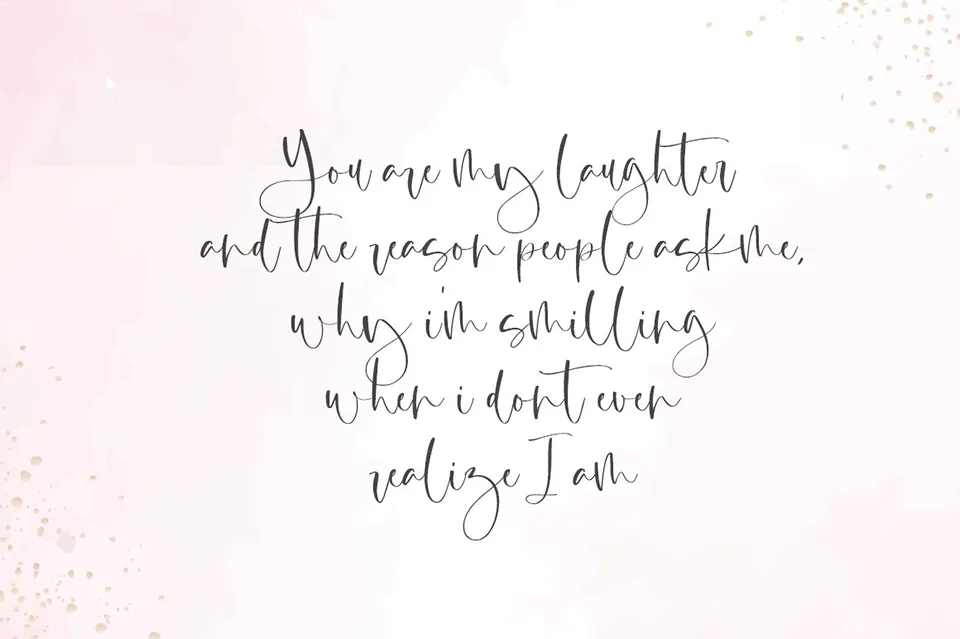 You are my laughter
and the reason people ask me,
why i'm smilling
when i dont even
realize I am